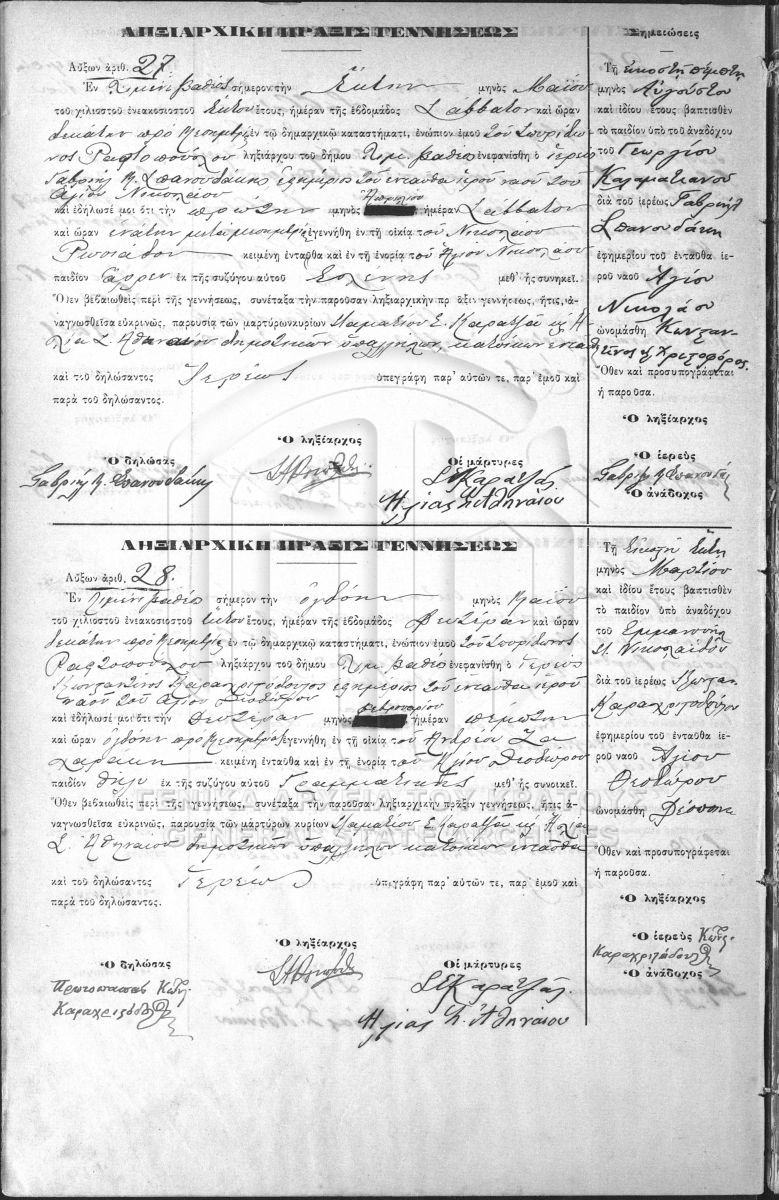 ΛΗΞΙΑΡΧΙΚΗ ΠΡΑΞΙΣ ΓΕΝΝΗΣΕΩΣ
Αὔξων ἀριθ. 27
Ἐν Λιμένι Βαθέος σήμερον τὴν Ἕκτην μηνὸς Μαΐου
τοῦ χιλιοστοῦ ἐνεακοσιοστοῦ ἕκτου ἔτους, ἡμέραν τῆς ἑβδομάδος Σάββατον καὶ ὥραν
δεκάτην πρὸ μεσημβρίας ἐν τῷ δημαρχικῷ καταστήματι, ἐνώπιον ἐμοῦ τοῦ Σπυρίδω
νος Ραφτοπούλου ληξιάρχου τοῦ δήμου Λιμ. Βαθέος ἐνεφανίσθη ὁ ἱερεὺς
Γαβριὴλ Κ. Σπανουδάκης ἐφημέριος τοῦ ἐνταῦθα ἱεροῦ ναοῦ τοῦ
Ἁγίου Νικολάου
καὶ ἐδήλωσέ μοι ὅτι τὴν πρώτην μηνὸς Ἀπριλίου ἡμέραν Σάββατον
καὶ ὥραν ἐνάτην μετὰ μεσημβρίαν ἐγεννήθη ἐν τῇ οἰκίᾳ τοῦ Νικολάου
κειμένῃ ἐνταῦθα καὶ ἐν τῇ ἐνορίᾳ τοῦ Ἁγίου Νικολάου
παιδίον ἄρρεν ἐκ τῆς συζύγου αὐτοῦ Ἑλένης μεθ' ἧς συνηκεῖ.
Ὅθεν βεβαιωθεὶς περὶ τῆς γεννήσεως, συνέταξα τὴν παροῦσαν ληξιαρχικὴν πρᾶξιν γεννήσεως, ἥτις, ἀ-
ναγνωσθεῖσα εὐκρινῶς, παρουσίᾳ τῶν μαρτύρων κυρίων Σταματίου Σ. Καρατζᾶ κ Η
λία Σ. Ἀθηναίου δημοτικῶν ὑπαλλήλων, κατοίκων ἐνταῦθα
καὶ τοῦ δηλώσαντος Ἱερέως ὑπεγράφη παρ' αὐτῶν τε, παρ' ἐμοῦ καὶ
παρὰ τοῦ δηλώσαντος.
Ὁ δηλώσας
Γαβριὴλ Κ. Σπανουδάκης
Ὁ ληξίαρχος
Οἱ μάρτυρες
Σ Καρατζᾶς
Ἠλίας Σ. Ἀθηναίου
Σημειώσεις
Τῇ εἰκοστῇ πέμπτῃ
μηνὸς Αὐγούστου
καὶ ἰδίου ἔτους βαπτισθὲν
τὸ παιδίον ὑπὸ τοῦ ἀναδόχου
τοῦ Γεωργίου
Καλαματιανοῦ
διὰ τοῦ ἱερέως Γαβριὴλ
Σπανουδάκη
ἐφημερίου τοῦ ἐνταῦθα ἱε-
ροῦ ναοῦ Ἁγίου
Νικολάου
ὠνομάσθη Κωνσταν-
τῖνος ἢ Χριστοφόρος.
Ὅθεν καὶ προσυπογράφεται
ἡ παροῦσα.
Ὁ ληξίαρχος
Ὁ ἱερεὺς
Γαβριὴλ Κ. Σπανουδάκης
Ὁ ἀνάδοχος
ΛΗΞΙΑΡΧΙΚΗ ΠΡΑΞΙΣ ΓΕΝΝΗΣΕΩΣ
Αὔξων ἀριθ. 28.
Ἐν Λιμένι Βαθέος σήμερον τὴν ὀγδόην μηνὸς Μαΐου
τοῦ χιλιοστοῦ ἐνεακοσιοστοῦ ἕκτου ἔτους, ἡμέραν τῆς ἑβδομάδος Δευτέραν καὶ ὥραν
δεκάτην πρὸ μεσημβρίας ἐν τῷ δημαρχικῷ καταστήματι, ἐνώπιον ἐμοῦ τοῦ Σπυρίδωνος
Ραφτοπούλου ληξιάρχου τοῦ δήμου Λιμ. Βαθέος ἐνεφανίσθη ὁ Ἱερεὺς
Κωνσταντῖνος Καραχριστόδουλος ἐφημέριος τοῦ ἐνταῦθα ἱεροῦ
ναοῦ τοῦ Ἁγίου Θεοδώρου
καὶ ἐδήλωσέ μοι ὅτι τὴν Δευτέραν μηνὸς Φεβρουαρίου ἡμέραν πέμπτην
καὶ ὥραν ὀγδόην πρὸ μεσημβρίας ἐγεννήθη ἐν τῇ οἰκίᾳ τοῦ Ἀνδρέα
κειμένῃ ἐνταῦθα καὶ ἐν τῇ ἐνορίᾳ τοῦ Ἁγίου Θεοδώρου
παιδίον θῆλυ ἐκ τῆς συζύγου αὐτοῦ Γραμματικῆς μεθ' ἧς συνοικεῖ.
Ὅθεν βεβαιωθεὶς περὶ τῆς γεννήσεως, συνέταξα τὴν παροῦσαν ληξιαρχικὴν πρᾶξιν γεννήσεως, ἥτις ἀ-
ναγνωσθεῖσα εὐκρινῶς, παρουσίᾳ τῶν μαρτύρων κυρίων Σταματίου Σ Καρατζᾶ κ Ἠλία
Σ. Ἀθηναίου δημοτικῶν ὑπαλλήλων κατοίκων ἐνταῦθα
καὶ τοῦ δηλώσαντος Ἱερέως ὑπεγράφη παρ' αὐτῶν τε, παρ' ἐμοῦ καὶ
παρὰ τοῦ δηλώσαντος.
Ὁ δηλώσας
Πρωτοπαπᾶς Κωνς.
Καραχριστόδουλος
Ὁ ληξίαρχος
Οἱ μάρτυρες
Σ Καρατζᾶς.
Ἠλίας Σ. Ἀθηναίου
Τῇ Εἰκοστῇ ἕκτῃ
μηνὸς Μαρτίου
καὶ ἰδίου ἔτους βαπτισθὲν
τὸ παιδίον ὑπὸ τοῦ ἀναδόχου
τοῦ Ἐμμανουὴλ
Νικολαΐδου
διὰ τοῦ ἱερέως Κωνσταν.
Καραχριστοδούλου
ἐφημερίου τοῦ ἐνταῦθα ἱε-
ροῦ ναοῦ Ἁγίου
Θεοδώρου
ὠνομάσθη Δέσποινα
Ὅθεν καὶ προσυπογράφεται
ἡ παροῦσα.
Ὁ ληξίαρχος
Ὁ ἱερεὺς Κωνς.
Καραχριστόδουλος
Ὁ ἀνάδοχος
ΓΕΝΙΚΑ ΑΡΧΕΙΑ ΤΟΥ ΚΡΑΤΟΥΣ
GENERAL STATE ARCHIVES